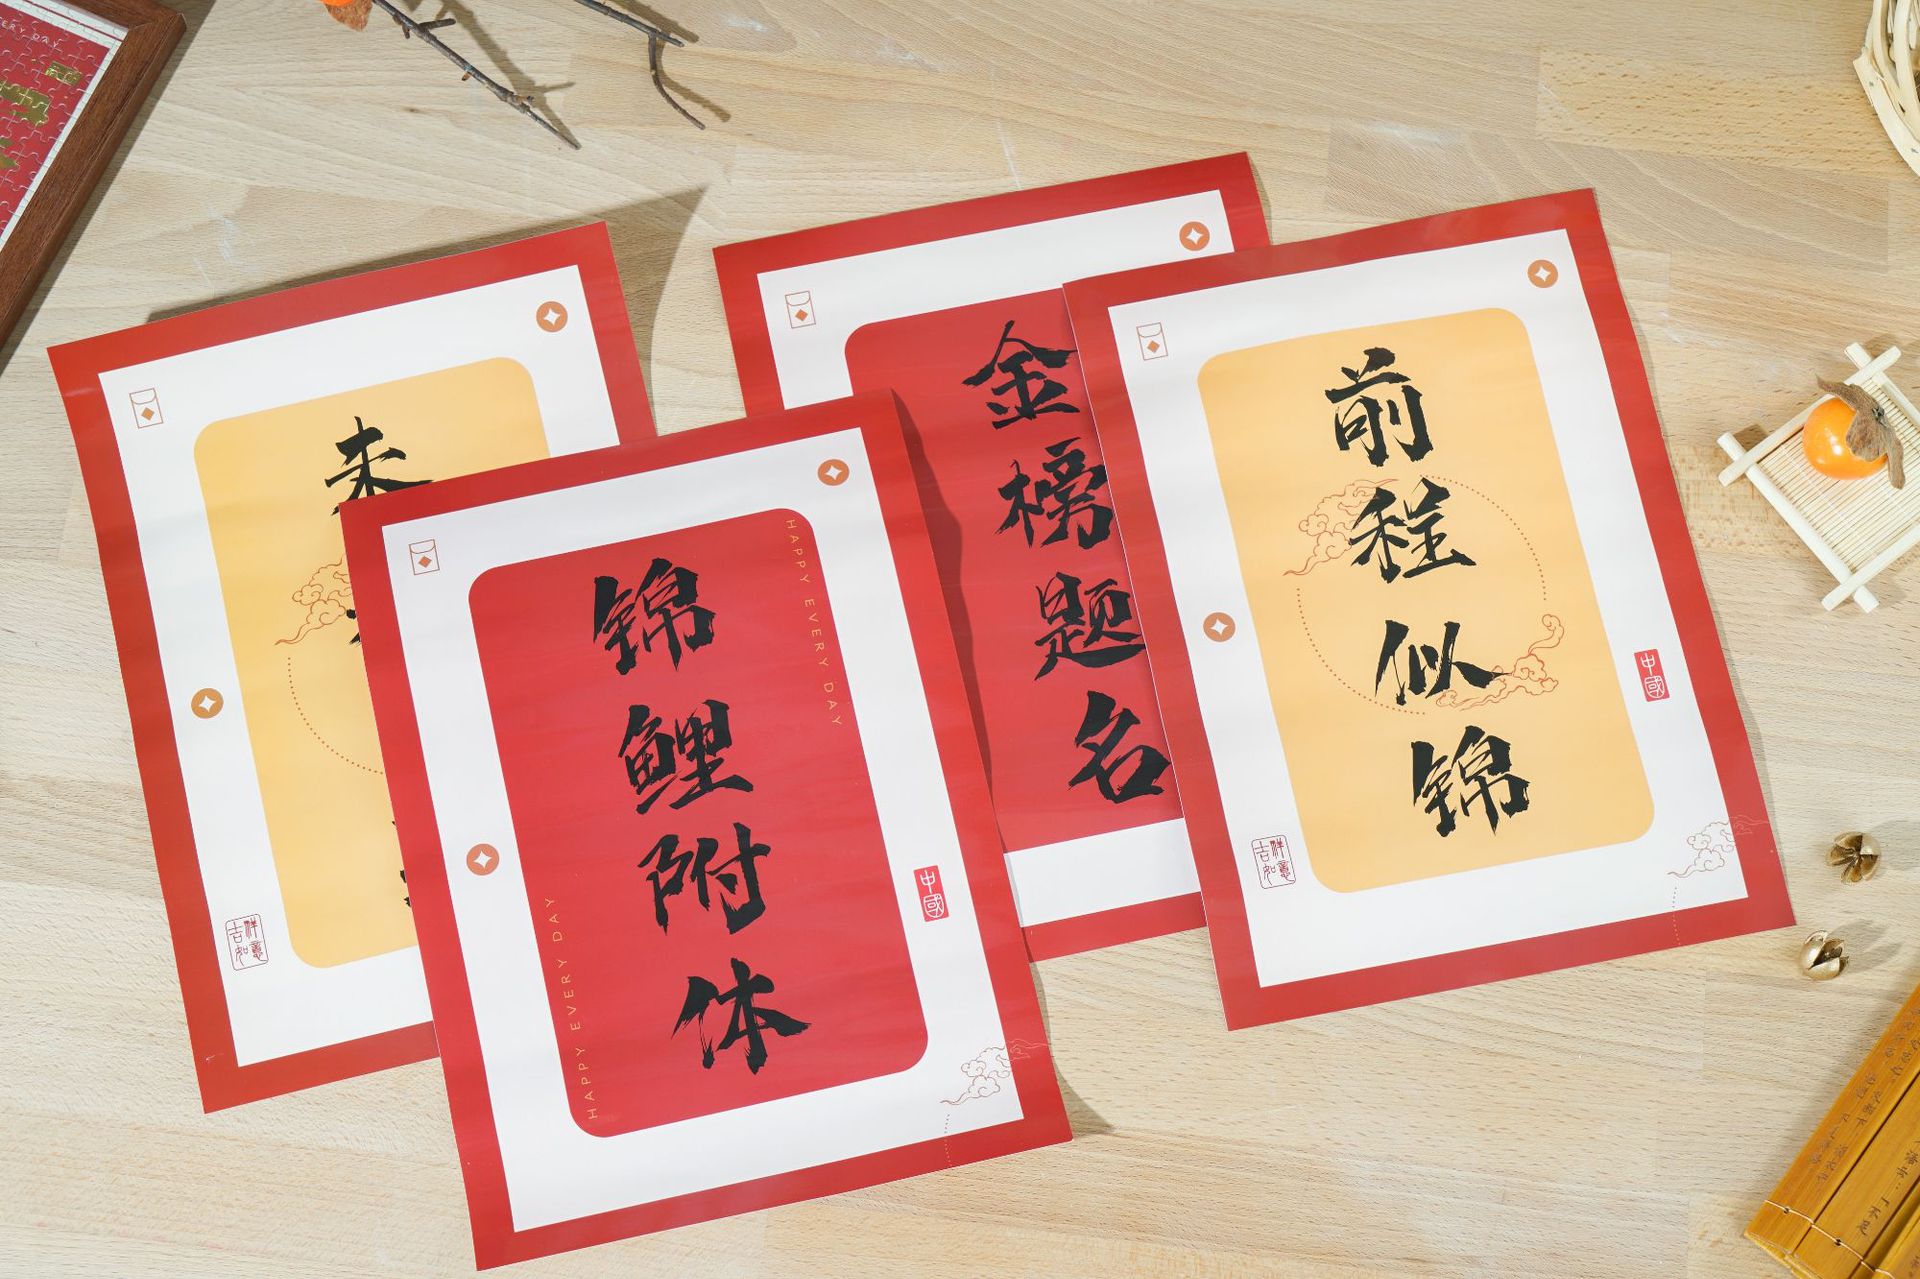 未
吉祥
如意
锦鲤附体
HAPPY EVERY DAY
HAPPY EVERY DAY
中國
金榜题名
前程似锦
中國
吉祥
如意